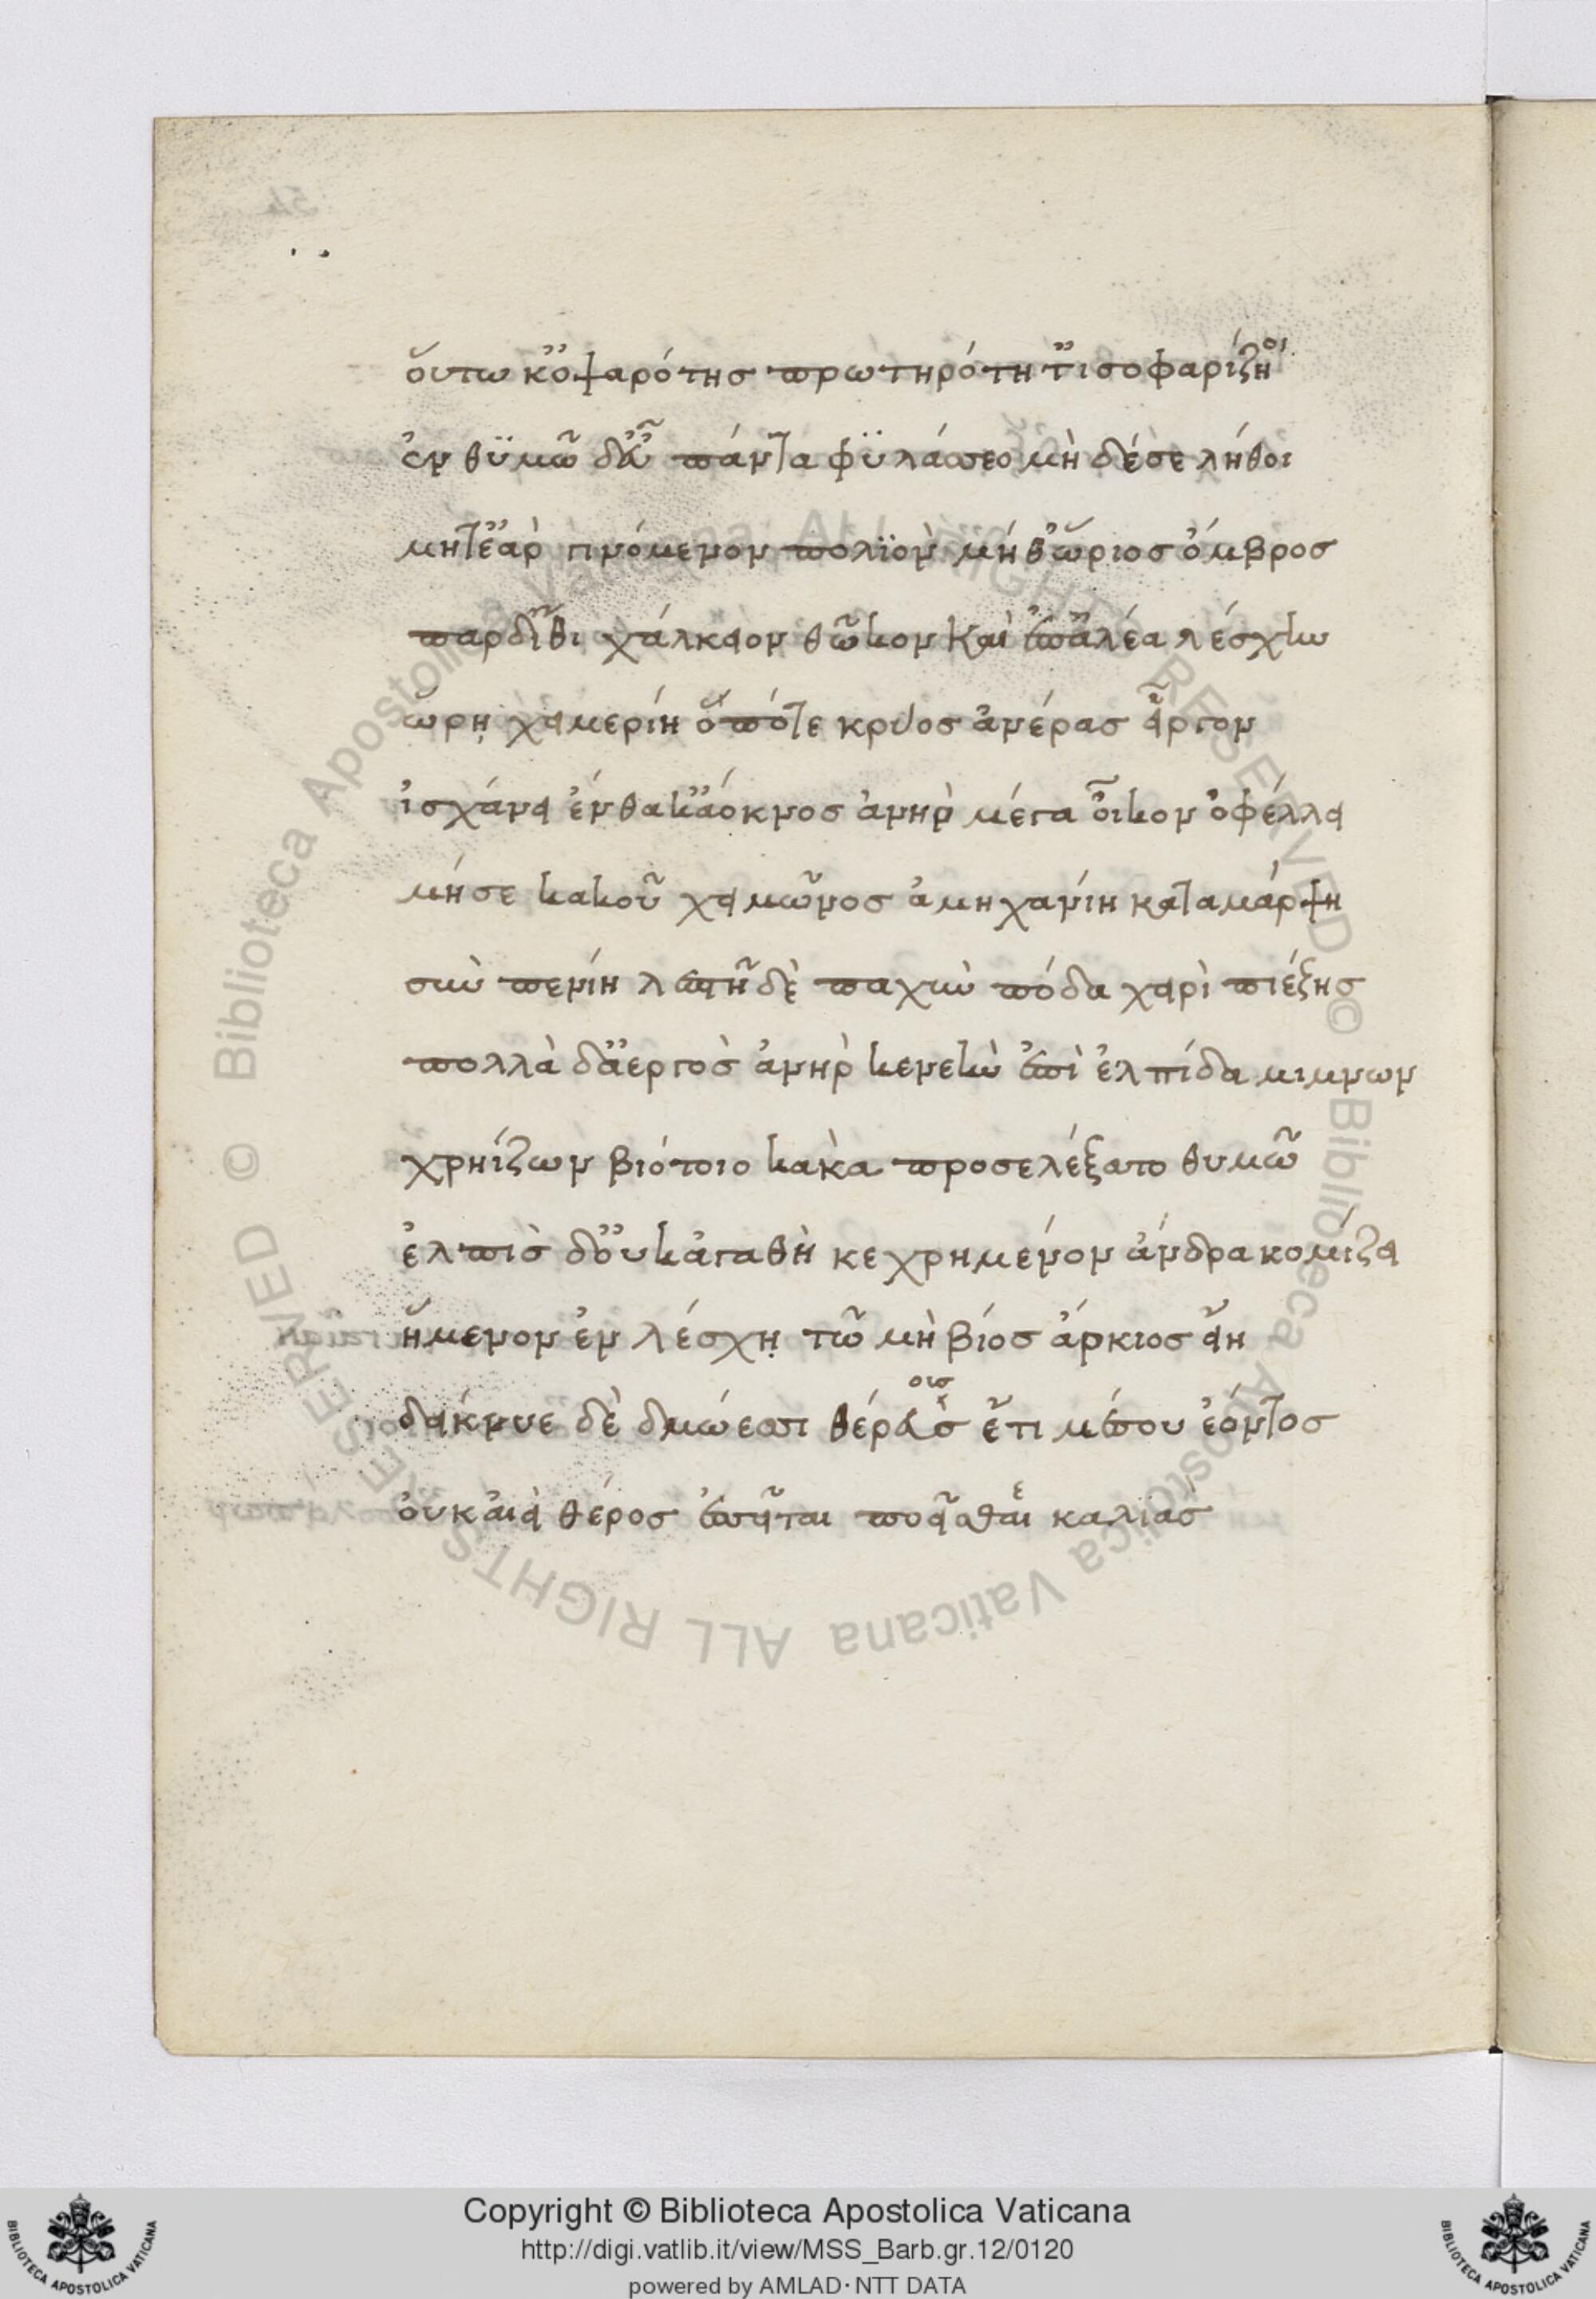 οὕτω κ' ὀψαρότης πρωτηρότῃ ἰσοφαρίζῃ οι
ἐν θϋμῶ δ' εὖ πάντα φϋλάσσεο μὴ δέσε λήθοι
μητ' ἔαρ γινόμενον πολϊὸν μήθ' ὥριος ὄμβρος
παρ δ' ἴθι χάλκειον θῶκον καὶ ἐπ' ἀλέα λέσχην
ὥρῃ χειμερίη ὁπότε κρύος ἀνέρας εἶργον
ἰσχάνει ἔνθα κ' ἄοκνος ἀνὴρ μέγα οἶκον ὀφέλλει
μήσε κακοῦ χειμῶνος ἀμηχανίη καταμάρψη
σὺν πενίη λεπτῆ δὲ παχὺν πόδα χειρὶ πιέξης
πολλὰ δ' ἄεργὸς ἀνὴρ κενεὴν ἐπὶ ἐλπίδα μιμνων
χρηίζων βιότοιο κακὰ προσελέξατο θυμῶ
ἐλπὶς δ' οὐκ ἀγαθὴ κεχρημένον ἄνδρα κομίζει
ἥμενον ἐν λέσχῃ τῶ μὴ βίος ἄρκιος εἴη
δείκνυε δὲ δμώεσσι θέρευς ἔτι μέσσου ἐόντος
οὐκ αἰεὶ θέρος ἐσσεῖται ποιεῖσθαι καλιὰς
Biblioteca Apostolica Vaticana ALL RIGHTS RESERVED ©
Copyright © Biblioteca Apostolica Vaticana
http://digi.vatlib.it/view/MSS_Barb.gr.12/0120
powered by AMLAD·NTT DATA
BIBLIOTECA APOSTOLICA VATICANA
BIBLIOTECA APOSTOLICA VATICANA